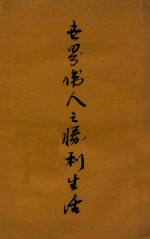 世界偉人之勝利生活